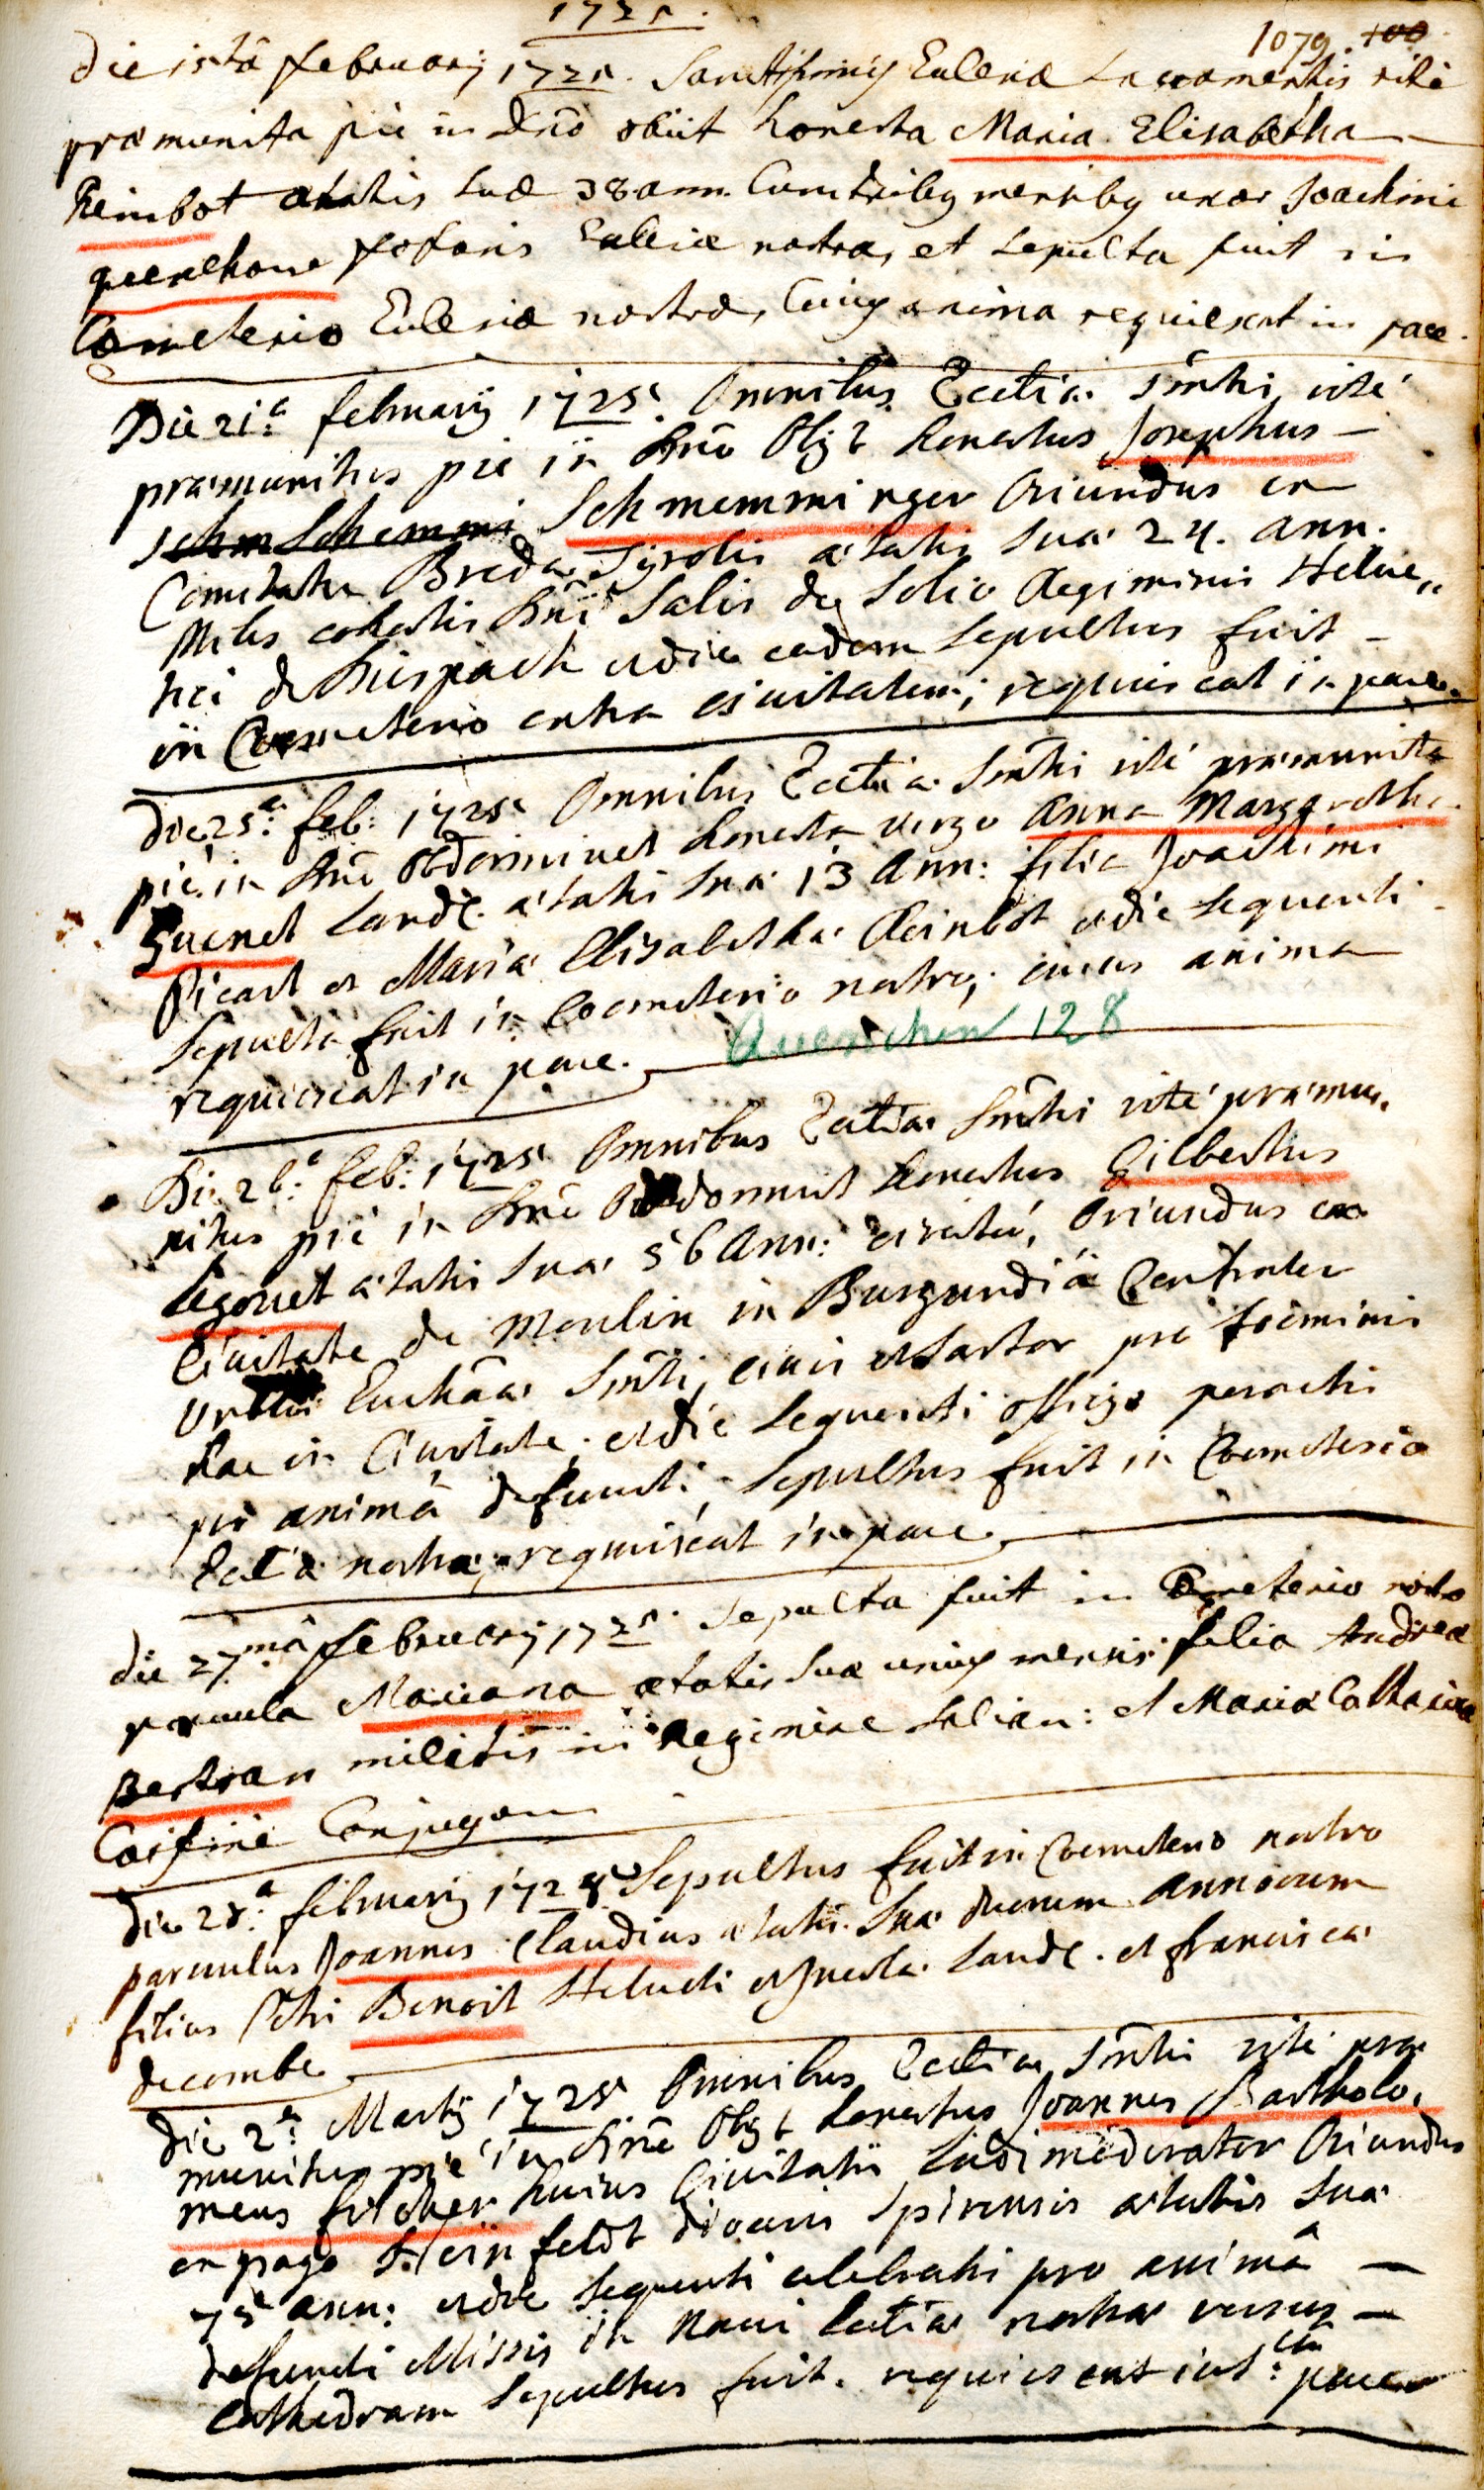 1725.
1079. 100
die istâ februarij 1725. Sanctissimis Eclesiæ sacramentis rité
præmunita pie in dño obiit honesta Maria Elisabetha
Reimbot ætatis suæ 38 ann. cum tribus mensibus uxor Joachimi
quenehone fossoris Eclesiæ nostræ, et sepulta fuit in
Cœmeterio Eclesiæ nostræ, Cuius anima requiescat in pace.
Die 21a februarij 1725. Omnibus Ecctiæ Smtis rité
præmunitus pie in Dno Obijt honestus Josephus
Schmemminger Oriundus ex
Comitatu Breda Tyrolis ætatis suæ 24. ann.
Miles cohortis Dni Salis de Solio Regiminis Helve„
tici de Diespach et die eadem sepultus fuit
in Coemeterio extra civitatem; requiescat in pace.
Die 25a: feb: 1725 Omnibus Ecctiæ Smtis rité præmunita
pié in Dno Obdormivet honesta virgo Anna Margaretha
Guenet Laudt. ætatis suæ 13 Ann: filia Joachimi
Picart et Mariæ Elisabethæ Reinbot et die sequenti
sepulta fuit in Coemeterio nostro; cuius anima
requiescat in pace.
Quenehen 128
Die 26a: feb: 1725 Omnibus Ecctiæ Smtis rité præmu„
nitus pié in Dno Obdormivit honestus Gilbertus
Legonet ætatis suæ 56 Ann: circiter, Oriundus ex
Civitate de Moulin in Burgundiâ Confrater
Euchâæ Smti, civis et sartor pro foeminis
hac in Civitate; et die sequenti officio peracto
pro animâ defuncti, sepultus fuit in Coemeterio
Ecctiæ nostræ, requiescat in pace.
die 27mâ februarij 1725. sepulta fuit in Cœmeterio nostro
parvula Mariana ætatis suæ unius mensis filia Andreæ
Bertran militis in Regimine Salian: et Mariæ Catharinæ
Conjugum
die 28a: februarij 1725 Sepultus fuit in Coemeterio nostro
parvulus Joannes Claudius ætatis suæ duorum Annorum
filius Petri Benoit Helveti et Laudt. et franciscæ
decombe
Die 2a: Martij 1725 Omnibus Ecctiæ Smtis rité præ
munitus pié in Dno Obijt honestus Joannes Bartholo„
meus fischer huius Civitatis Ludimoderator Oriundus
ex pago Steinfeldt dioecis Spirensis ætatis suæ
75 ann: et die sequenti celebratis pro animâ
defuncti Missis in Navi Ecctiæ nostræ versus
Cathedram sepultus fuit. requiescat in sta: pace